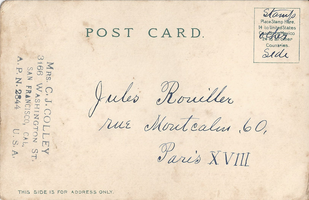 POST CARD.
Stamp
Place Stamp Here.
other
Side
MRS. C. J. COLLEY
3168 WASHINGTON ST.
SAN FRANCISCO, CAL.
A.P.N. 2844 U.S.A.
Jules Rouiller
rue Montcalm, 60,
Paris XVIII
THIS SIDE IS FOR ADDRESS ONLY.